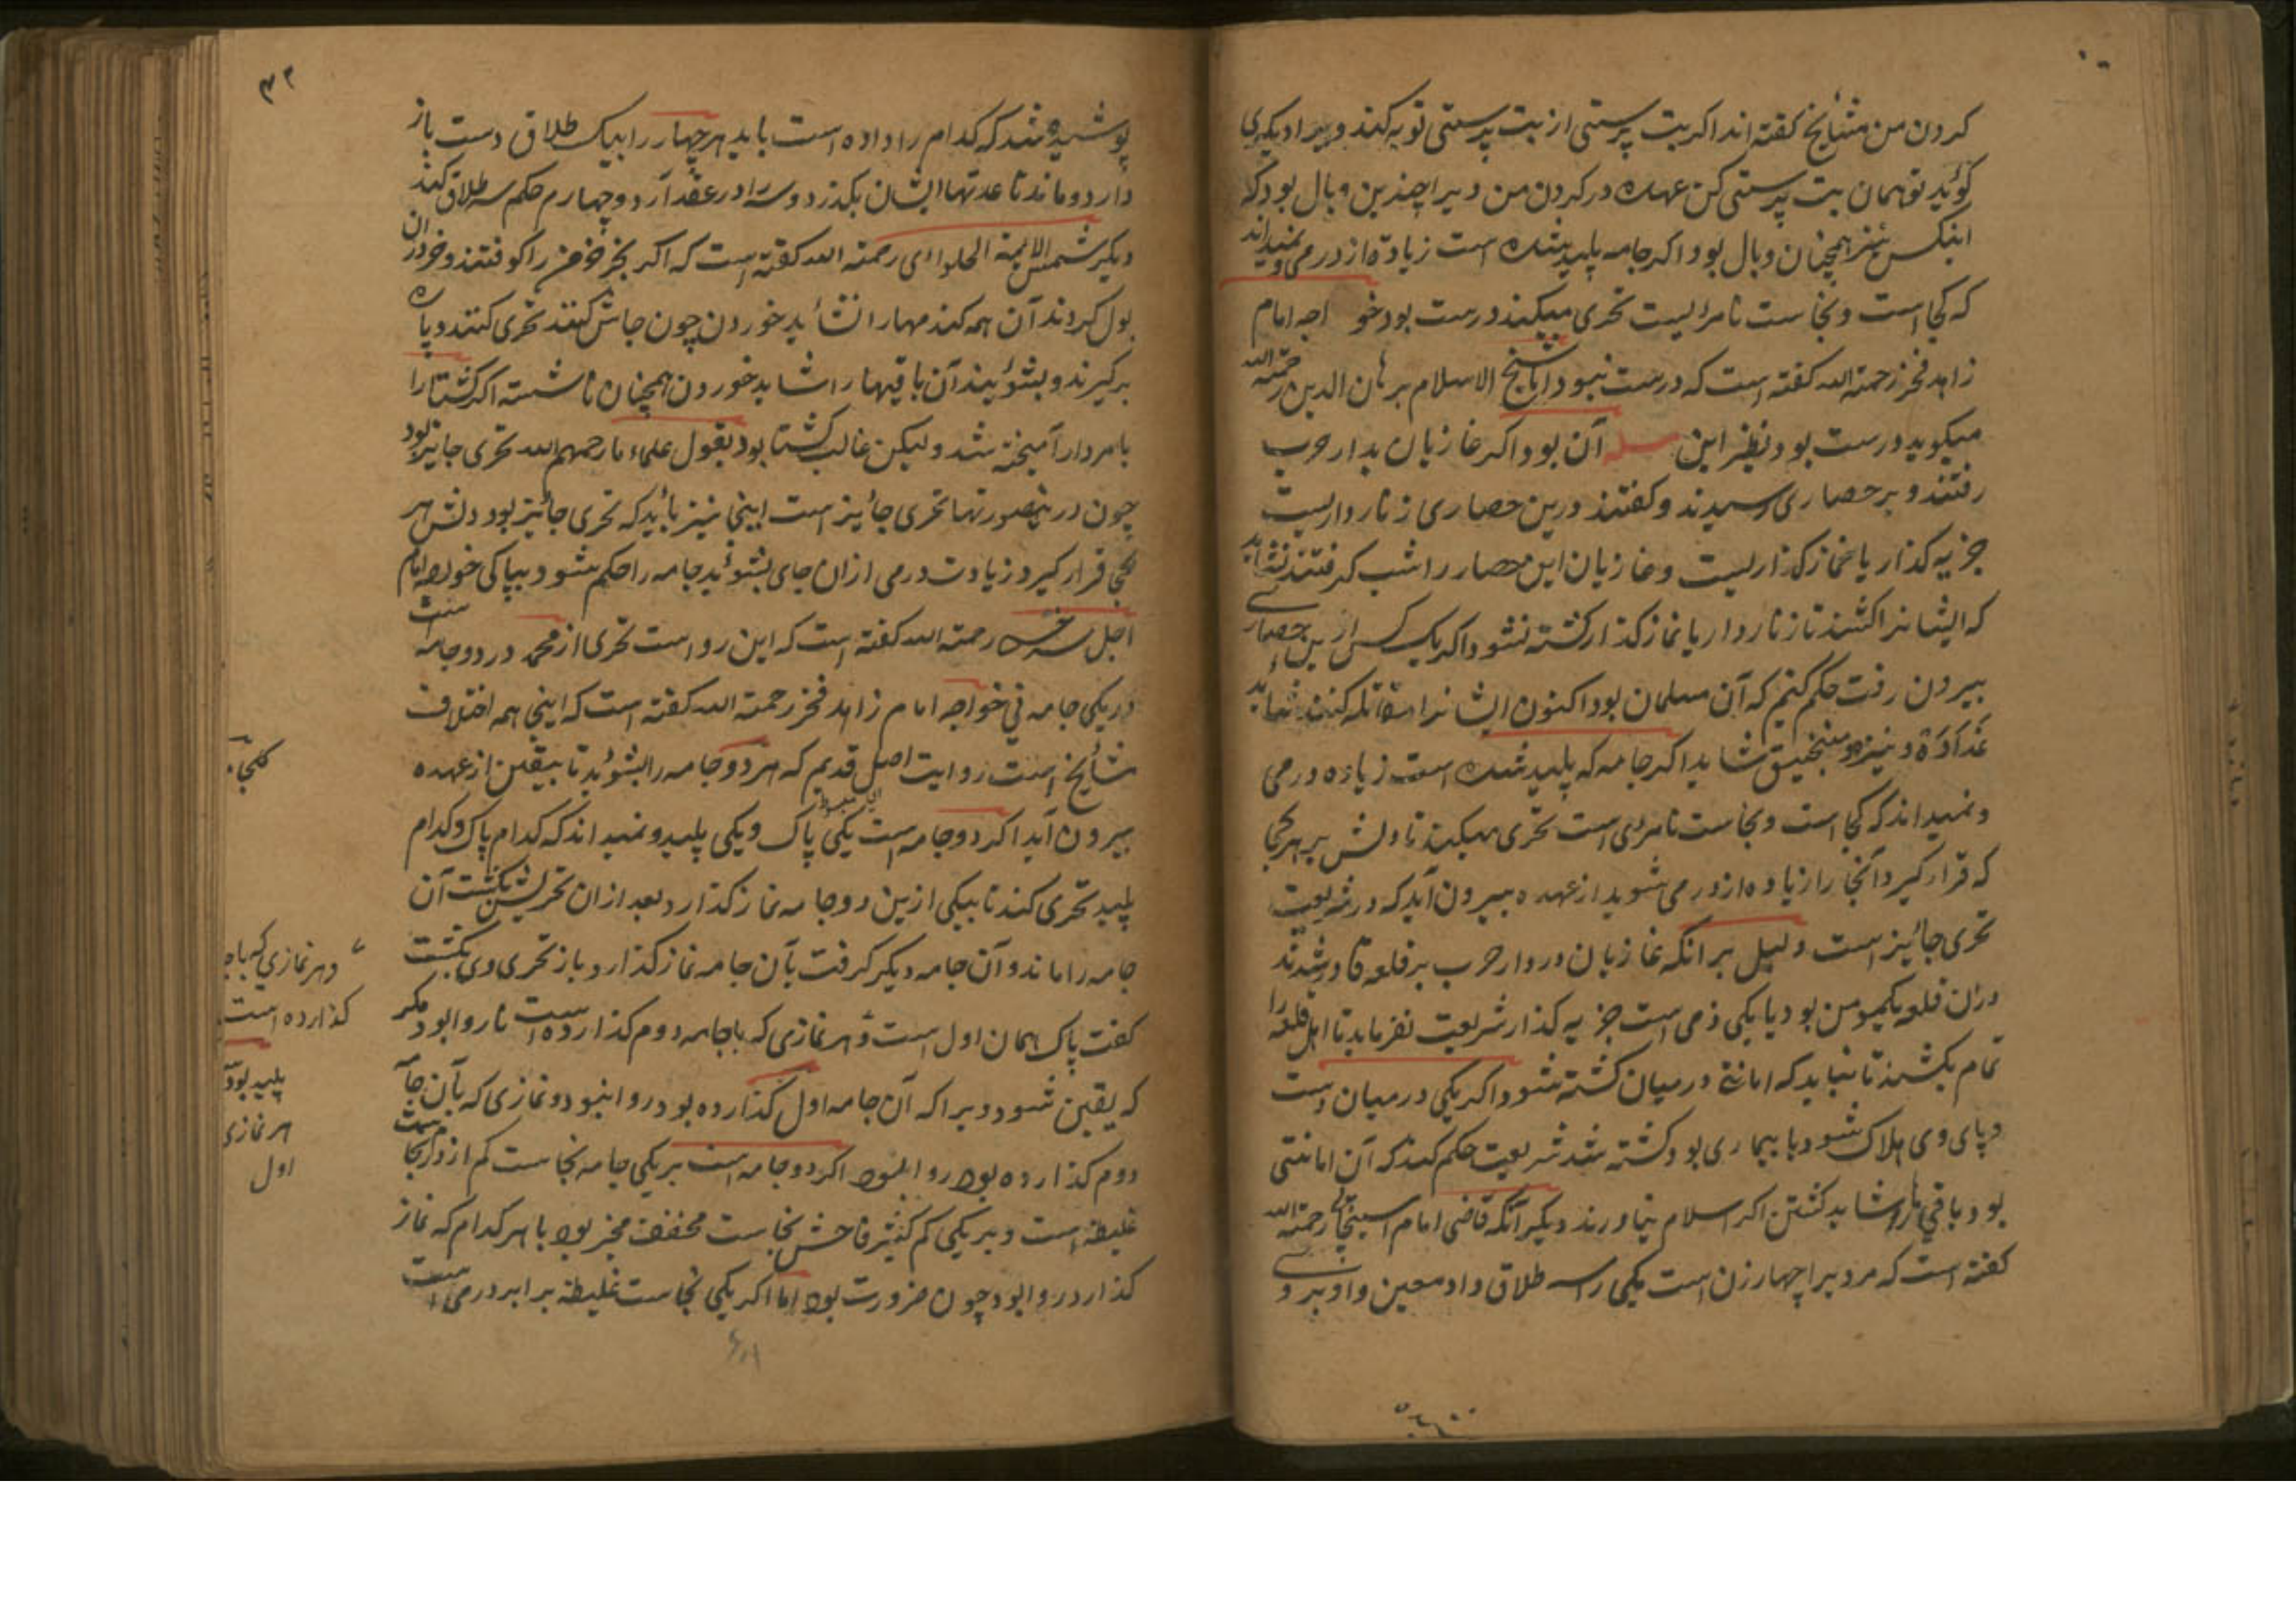 کردن من مشایخ کفته اند اکر بت پرستی از بت پرستی توبه کند و ویرا دیکری
کوئید تو همان بت پرستی کن عهده در کردن من ویرا چندین وبال بود که
اینکس نیز همچنان وبال بود اکر جامه پلید شده است زیادة از درمی و نمیداند
که کجا است و نجاست نامرئیست تحری میکند درست بود خواجه امام
زاهد فخر رحمته الله کفته است که درست نبود اما شیخ الاسلام برهان الدین رحمته الله
میکوید درست بود و نظیر این مسله آن بود اکر غازیان بدار حرب
رفتند و بر حصاری رسیدند و کفتند درین حصاری زناردار یست
جزیه کذار یا نماز کذار یست و غازیان این حصار را شب کرفتند نشاید
که ایشانرا کشند تا زناردار یا نماز کذار کشته نشود و اکر یک کس از این حصاری
بیرون رفت حکم کنیم که آن مسلمان بود اکنون ایشانرا مقاتله کنند شاید
عذادة و نیزه و منجنیق شاید اکر جامه که پلید شده است زیاده درمی
و نمیداند که کجا است و نجاست نامرئی است تحری میکند تا دلش بر هر کجا
که قرار کیرد آنجا را زیاده از درمی بشوید از عهده بیرون آید که در شریعت
تحری جائیز است دلیل بر انکه غازیان در دار حرب بر قلعه قادر شدند
دران قلعه یکی مومن بود یا یکی ذمی است جزیه کذار شریعت نفرماید تا اهل قلعه را
تمام بکشند تا نباید که امانتی در میان کشته شود و اکر یکی در میان دست
و پای وی هلاک شود یا بیماری بود کشته شد شریعت حکم کند که آن امانتی
بود و باقی را شاید کشتن اکر اسلام نیاورند دیکر آنکه قاضی امام اسبیجابی رحمته الله
کفته است که مرد یرا چهار زن است یکی را سه طلاق داد معین و او بر وی
۳۲
پوشیده شد که کدام را داده است باید هر چهار را بیک طلاق دست باز
دارد و ماند تا عدتها ایشان بکذرد و سه را در عقد آرد و چهارم حکم سه طلاق کند
دیکر شمس الایمة الحلوائی رحمته الله کفته است که اکر بخر خرمن را کوفتند و خر دران
بول کردند آن همه کندمها را نشاید خوردن چون جاش کنند تحری کنند و پاره
برکیرند و بشوئیند آن باقیها را شاید خوردن همچنان ناشسته اکر کشتا را
با مردار آمیخته شد ولیکن غالب کشتا بود بقول علماء ما رحمهم الله تحری جایز بود
چون در ینصورتها تحری جائیز است اینجا نیز باید که تحری جائیز بود دلش هر
کجا قرار کیرد زیادت درمی ازان جای بشوئید جامه را حکم شود بپاکی خواجه امام
اجل سرخسی رحمته الله کفته است که این روا ست تحری از محمد در دو جامه است
در یکی جامه نی خواجه امام زاهد فخر رحمته الله کفته است که اینجا همه اختلاف
مشایخ است روایت اصل قدیم که هر دو جامه را بشوئید تا بیقین از عهده
بیرون آید اکر دو جامه است یکی پاک و یکی پلید و نمیداند که کدام پاک و کدام
پلید تحری کند تا بیکی ازین دو جامه نماز کذارد و بعد ازان تحریش بکشت آن
جامه را ماند و آن جامه دیکر کرفت بآن جامه نماز کذارد و باز تحری وی بکشت
کفت پاک همان اول است و هر نمازی که با جامه دوم کذارده است ناروا بود مکر
که یقین شود ویرا که آن جامه اول کذارده بود روا نبود و نمازی که بآن جامه
دوم کذارده بود روا نبود اکر دو جامه است بر یکی جامه نجاست کم از درم نجاست
غلیظه است و بر یکی کم کثیر فاحش نجاست مخففه مخیر بود با هر کدام که نماز
کذارد روا بود چون ضرورت بود اما اکر یکی نجاست غلیظه برابر درمی است
و هر نمازی که باجا
کذارده است
پلید بود
هر نمازی
اول